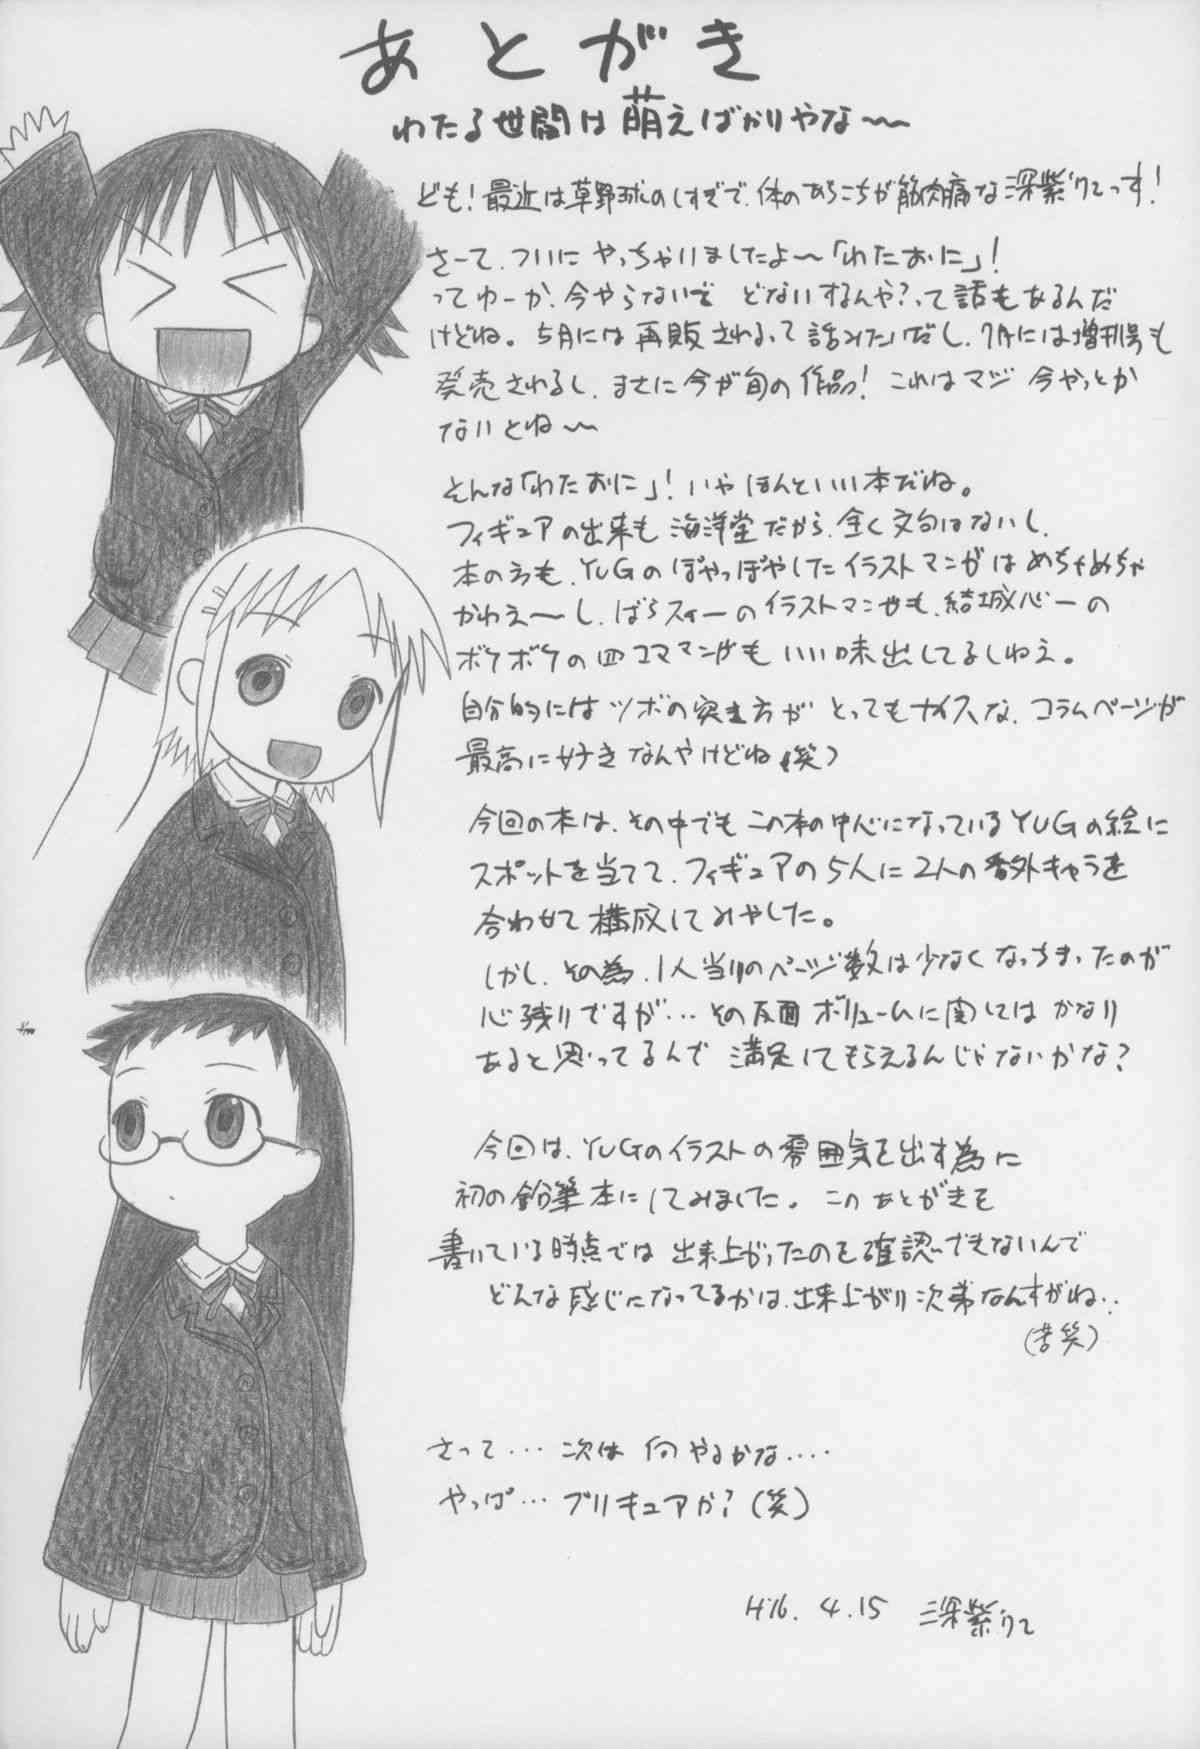 あとがき
わたる世間は萌えばかりやな〜
ども!最近は草野球のしすぎで、体のあちこちが筋肉痛な深紫'クてっす!
さーて、ついにやっちゃいましたよ〜「わたおに」!
ってゆーか、今やらないで どないするんや?って話もあるんだ
けどね。5月には再販されるって話みたいだし、7月には増刊号も
発売されるし、まさに今が旬の作品!これはマジ 今やっとか
ないとね〜
そんな「わたおに」!いやほんといい本だね。
フィギュアの出来も 海洋堂だから、全く文句はないし、
本の方も、YUGのぽやっぽやしたイラストマンガはめちゃめちゃ
かわえ〜し、ばらスィーのイラストマンガも、結城心一の
ボケボケの四コママンガも いい味出してるしねえ。
自分的にはツボの突き方が とってもナイスな、コラムページが
最高に好きなんやけどね(笑)
今回の本は、その中でも この本の中心になっているYUGの絵に
スポットを当てて、フィギュアの5人に2人の番外キャラを
合わせて構成してみやした。
しかし、その為、1人当りのページ数は少なくなっちまったのが
心残りですが…その反面ボリュームに関してはかなり
あると思ってるんで 満足してもらえるんじゃないかな?
今回は、YUGのイラストの雰囲気を出す為に
初の鉛筆本にしてみました。このあとがきを
書いている時点では 出来上がったのを確認できないんで
どんな感じになってるかは、出来上がり次第なんすがね‥
(苦笑)
さって… 次は 何やるかな‥‥
やっぱ… プリキュアか?(笑)
H16. 4.15 深紫クて